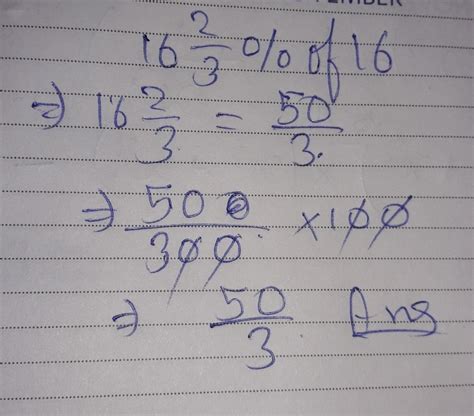 16 2/3 % of 16
⇒ 16 2/3 = 50/3.
⇒ 50/300 × 100
⇒ 50/3. Ans